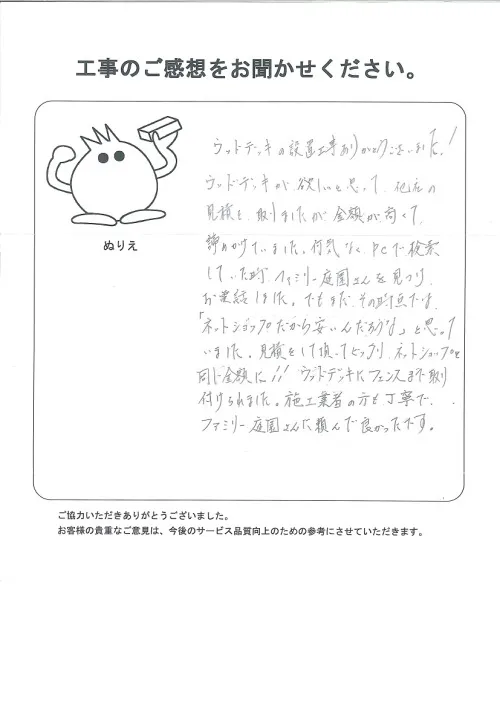 工事のご感想をお聞かせください。
ウッドデッキの設置工事ありがとうございました!
ウッドデッキが欲しいと思って、他店の
見積を取りましたが金額が高くて
諦めかけていました。何気なくPCで検索
していた時、ファミリー庭園さんを見つけ、
お電話しました。でもまだ、その時点では、
「ネットショップだから安いんだろうな」と思って
いました。見積をして頂いてビックリ、ネットショップと
同じ金額に!! ウッドデッキにフェンスまで取り
付けられました。施工業者の方も丁寧で、
ファミリー庭園さんに頼んで良かったです。
ぬりえ
ご協力いただきありがとうございました。
お客様の貴重なご意見は、今後のサービス品質向上のための参考にさせていただきます。